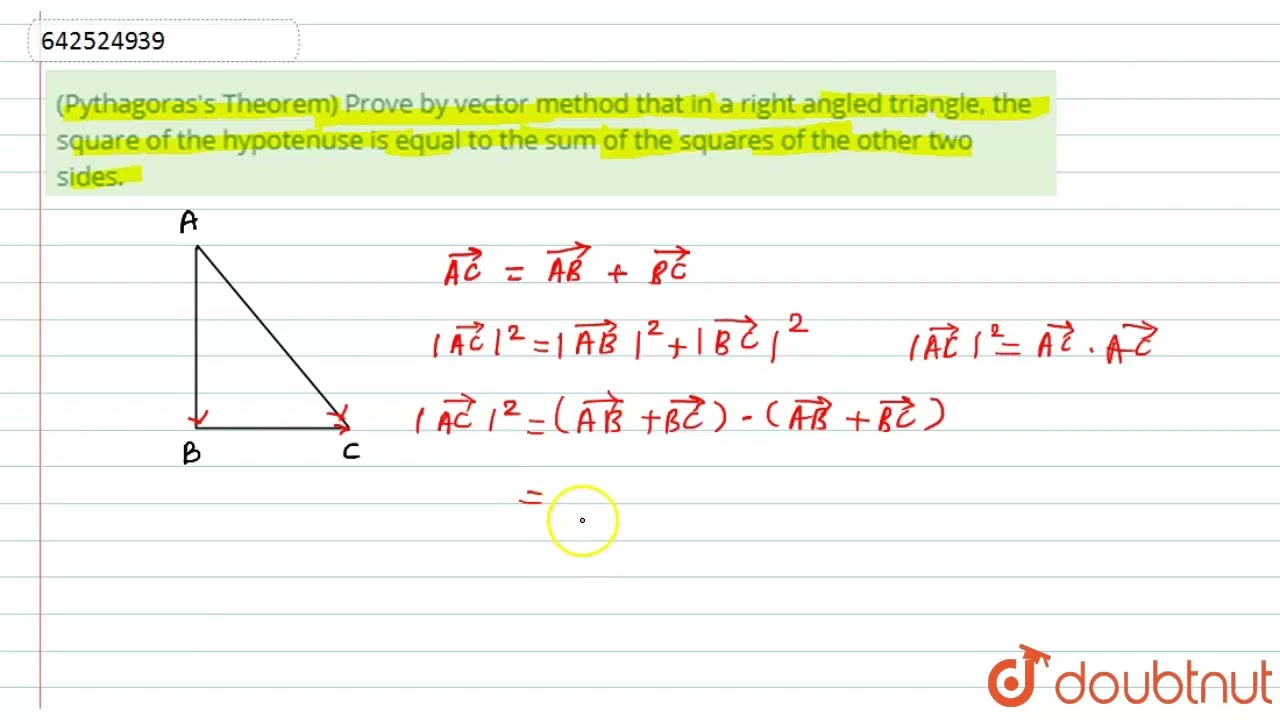 642524939
(Pythagoras's Theorem) Prove by vector method that in a right angled triangle, the
square of the hypotenuse is equal to the sum of the squares of the other two
sides.
A
B
C
$\overrightarrow{AC} = \overrightarrow{AB} + \overrightarrow{BC}$
$|\overrightarrow{AC}|^2 = |\overrightarrow{AB}|^2 + |\overrightarrow{BC}|^2$
$|\overrightarrow{AC}|^2 = \overrightarrow{AC} \cdot \overrightarrow{AC}$
$|\overrightarrow{AC}|^2 = (\overrightarrow{AB} + \overrightarrow{BC}) \cdot (\overrightarrow{AB} + \overrightarrow{BC})$
=
doubtnut